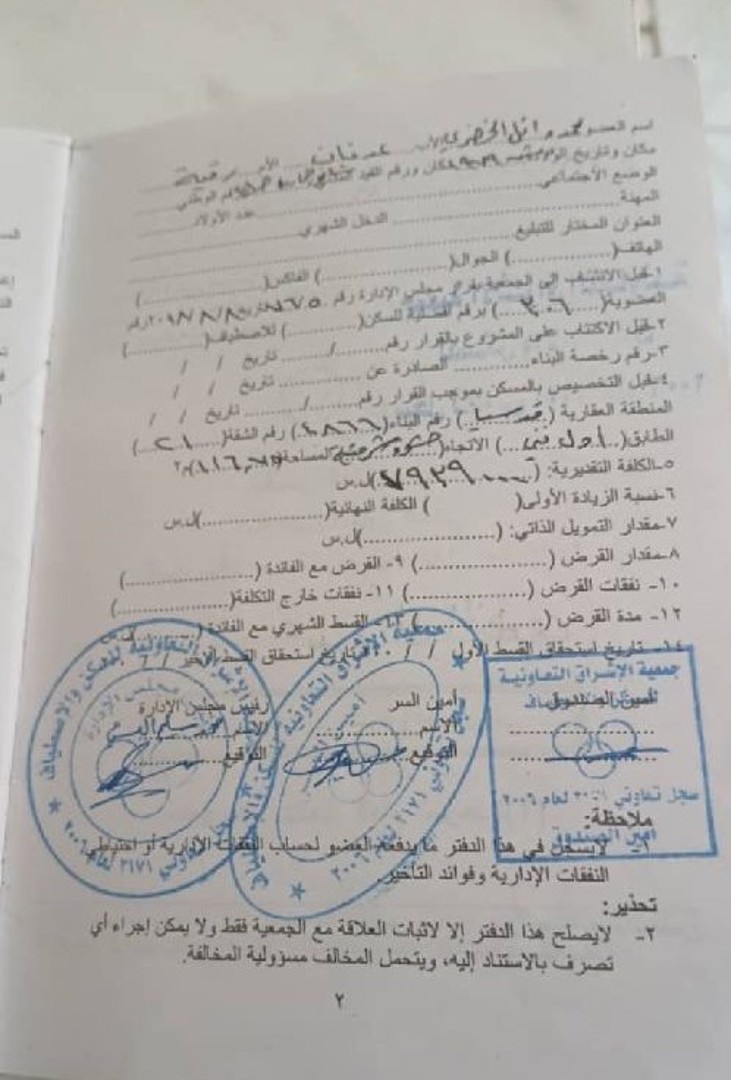 اسم العضو محمد وائل الخضري الأب عدنان الأم رقية
مكان وتاريخ الولادة ورقم القيد الرقم الوطني
الوضع الاجتماعي عدد الأولاد
المهنة الدخل الشهري
العنوان المختار للتبليغ
الهاتف(..........) الجوال(..........) الفاكس(..........)
١-قبل الانتساب إلى الجمعية بقرار مجلس الإدارة رقم
العضوية(٣٠٦) برقم أفضلية للسكن(..........) للاصطياف(..........)
٢-قبل الاكتتاب على المشروع بالقرار رقم......../........ تاريخ / /
٣-رقم رخصة البناء............ الصادرة عن ............ تاريخ / /
٤-قبل التخصيص بالمسكن بموجب القرار رقم......../........ تاريخ / /
المنطقة العقارية (قدسيا) رقم البناء( ) رقم الشقة(٢١)
الطابق(أول فني) الاتجاه( ) المساحة( )م٢
٥-الكلفة التقديرية: ( )ل.س
٦-نسبة الزيادة الأولى( ) الكلفة النهائية(..........)ل.س
٧-مقدار التمويل الذاتي: (..........)ل.س
٨-مقدار القرض (..........) ٩- القرض مع الفائدة (..........)
١٠- نفقات القرض (..........) ١١- نفقات خارج التكلفة(..........)
١٢- مدة القرض (..........) ١٣- القسط الشهري مع الفائدة (..........)ل.س
١٤- تاريخ استحقاق القسط الأول / / تاريخ استحقاق القسط الأخير / /
أمين الصندوق أمين السر رئيس مجلس الإدارة
الاسم الاسم
التوقيع التوقيع
جمعية الإشراق التعاونية
للسكن والاصطياف
سجل تعاوني ٢١٧١ لعام ٢٠٠٦
أمين الصندوق
جمعية الإشراق التعاونية للسكن والاصطياف
سجل تعاوني ٢١٧١ لعام ٢٠٠٦
أمين السر
جمعية الإشراق التعاونية للسكن والاصطياف
سجل تعاوني ٢١٧١ لعام ٢٠٠٦
مجلس الإدارة
ملاحظة:
١- لايسجل في هذا الدفتر ما يدفعه العضو لحساب النفقات الإدارية أو احتياطي
النفقات الإدارية وفوائد التأخير.
تحذير:
٢- لايصلح هذا الدفتر إلا لاثبات العلاقة مع الجمعية فقط ولا يمكن إجراء أي
تصرف بالاستناد إليه، ويتحمل المخالف مسؤولية المخالفة.
٢